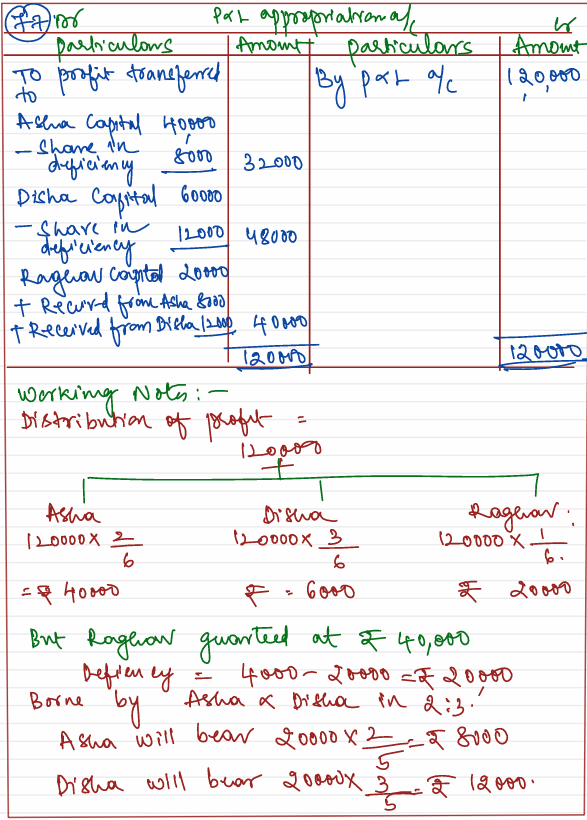 77 Dr P&L appropriation a/c Cr
Particulars Amount Particulars Amount
To profit transferred By P&L a/c 120,000
to
Asha Capital 40000
- Share in
deficiency 8000 32000
Disha Capital 60000
- Share in
deficiency 12000 48000
Raghav Capital 20000
+ Received from Asha 8000
+ Received from Disha 12000 40000
120000 120000
Working Notes:-
Distribution of profit =
120000
Asha Disha Raghav.
120000 x 2/6 120000 x 3/6 120000 x 1/6.
= ₹ 40000 ₹ = 6000 ₹ 20000
But Raghav guarteed at ₹ 40,000
Defiency = 4000 - 20000 = ₹ 20000
Borne by Asha & Disha in 2:3.
Asha will bear 20000 x 2/5 = ₹ 8000
Disha will bear 20000 x 3/5 = ₹ 12000.